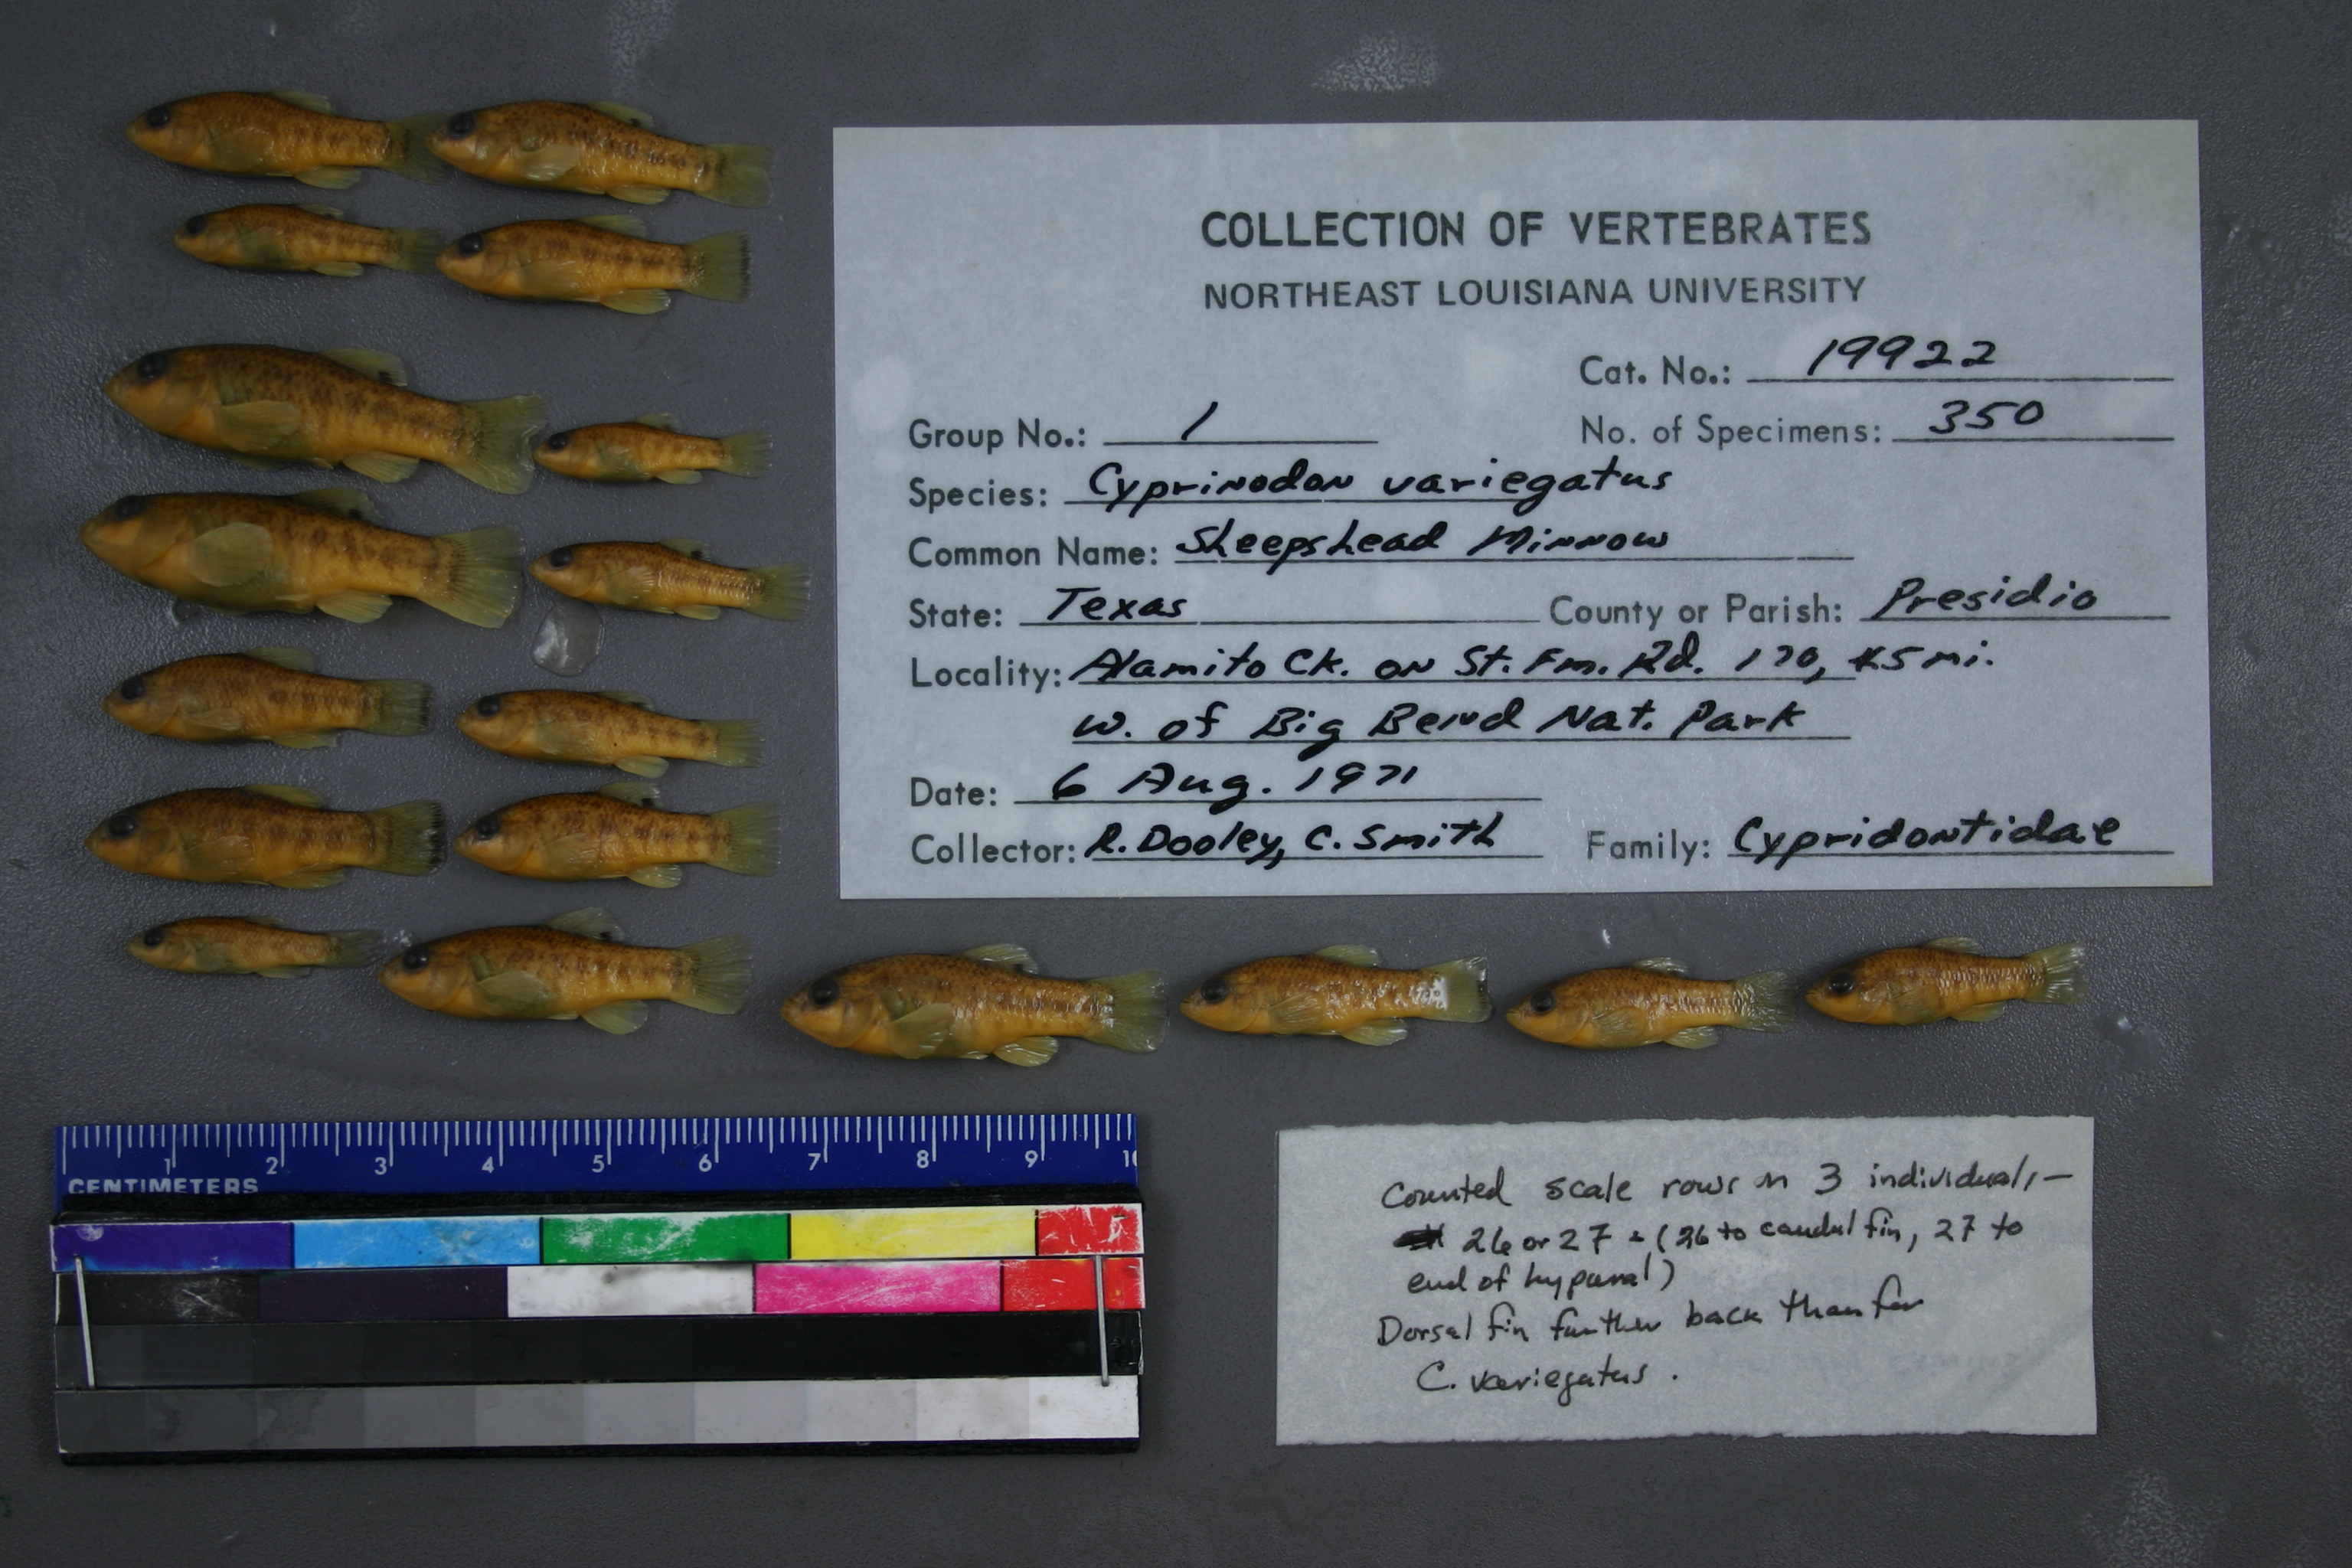 COLLECTION OF VERTEBRATES
NORTHEAST LOUISIANA UNIVERSITY
Cat. No.: 19922
Group No.: 1 No. of Specimens: 350
Species: Cyprinodon variegatus
Common Name: Sheepshead Minnow
State: Texas County or Parish: Presidio
Locality: Alamito Ck. on St. Fm. Rd. 170, 45 mi.
W. of Big Bend Nat. Park
Date: 6 Aug. 1971
Collector: R. Dooley, C. Smith Family: Cypridontidae
1 2 3 4 5 6 7 8 9 10
CENTIMETERS
Counted scale rows in 3 individuals –
26 or 27 (26 to caudal fin, 27 to
end of hypural)
Dorsal fin further back than for
C. variegatus.